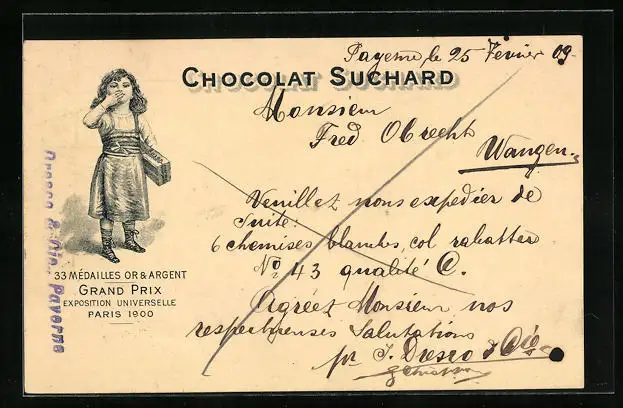 Payerne le 25 Février 09
CHOCOLAT SUCHARD
Monsieur
Fred Obrecht
Wangen
Veuillez nous expedier de
suite:
6 chemises blanches, col rabattes
No 43 qualité C.
Agréez Monsieur nos
respectueuses salutations
pr J. Dreszo & Cie
33 MÉDAILLES OR & ARGENT
GRAND PRIX
EXPOSITION UNIVERSELLE
PARIS 1900
& Cie, Payerne